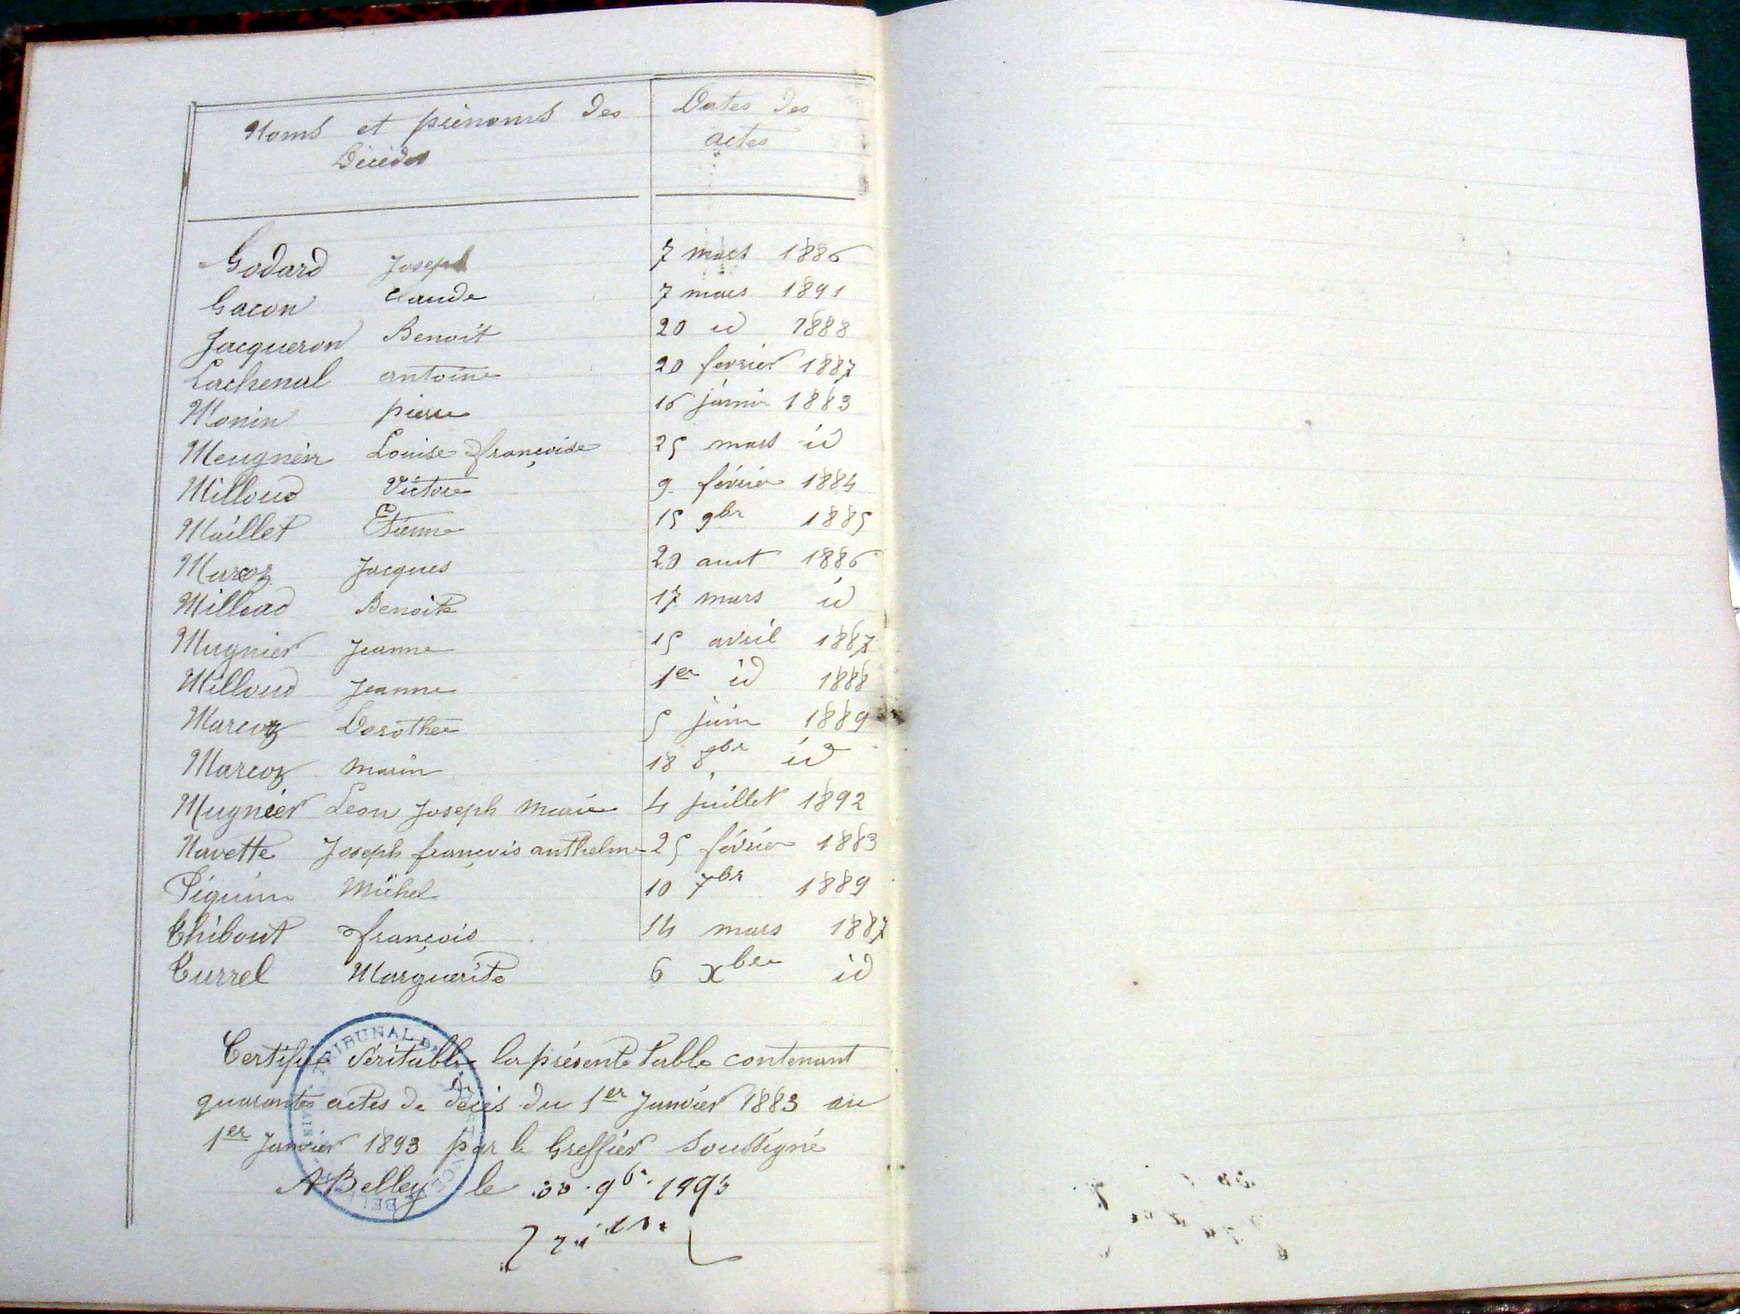 Noms et prénoms des Dates des
Décédés actes
Godard Joseph 7 mars 1886
Gacon Claude 7 mars 1891
Jacqueron Benoit 20 id 1888
Lachenal antoine 20 fevrier 1887
Monin pierre 16 janvier 1883
Meugnier Louise françoise 25 mars id
Milloud Victore 9 février 1884
Maillet Etienne 15 9br 1885
Marcoz Jacques 20 aout 1886
Milloud Benoite 17 mars id
Mugnier Jeanne 15 avril 1887
Milloud Jeanne 1er id 1888
Marcoz Dorothee 5 juin 1889
Marcoz marin 18 8br id
Mugnier Leon Joseph marie 4 juillet 1892
Navette Joseph françois anthelme 25 février 1883
Piquin Michel 10 7br 1889
Thibout françois 14 mars 1887
Currel Marguerite 6 xbre id
Certifié véritable la présente table contenant
quarante actes de décès du 1er Janvier 1883 au
1er Janvier 1893 par le Greffier soussigné
A Belley le 30 9b. 1893
TRIBUNAL